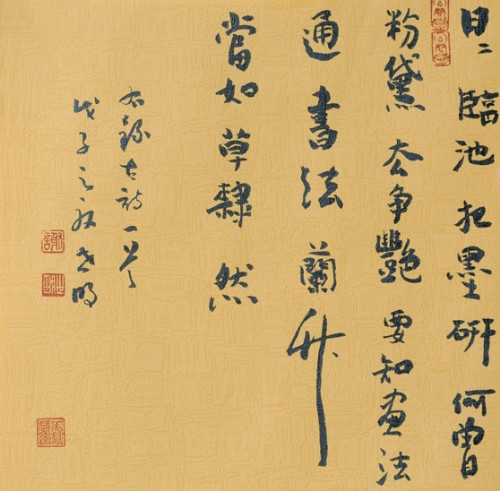 日〻臨池把墨研何曾
粉黛去争艷要知画法
通書法蘭竹
當如草隸然
右錄古詩一首
戊子之秋